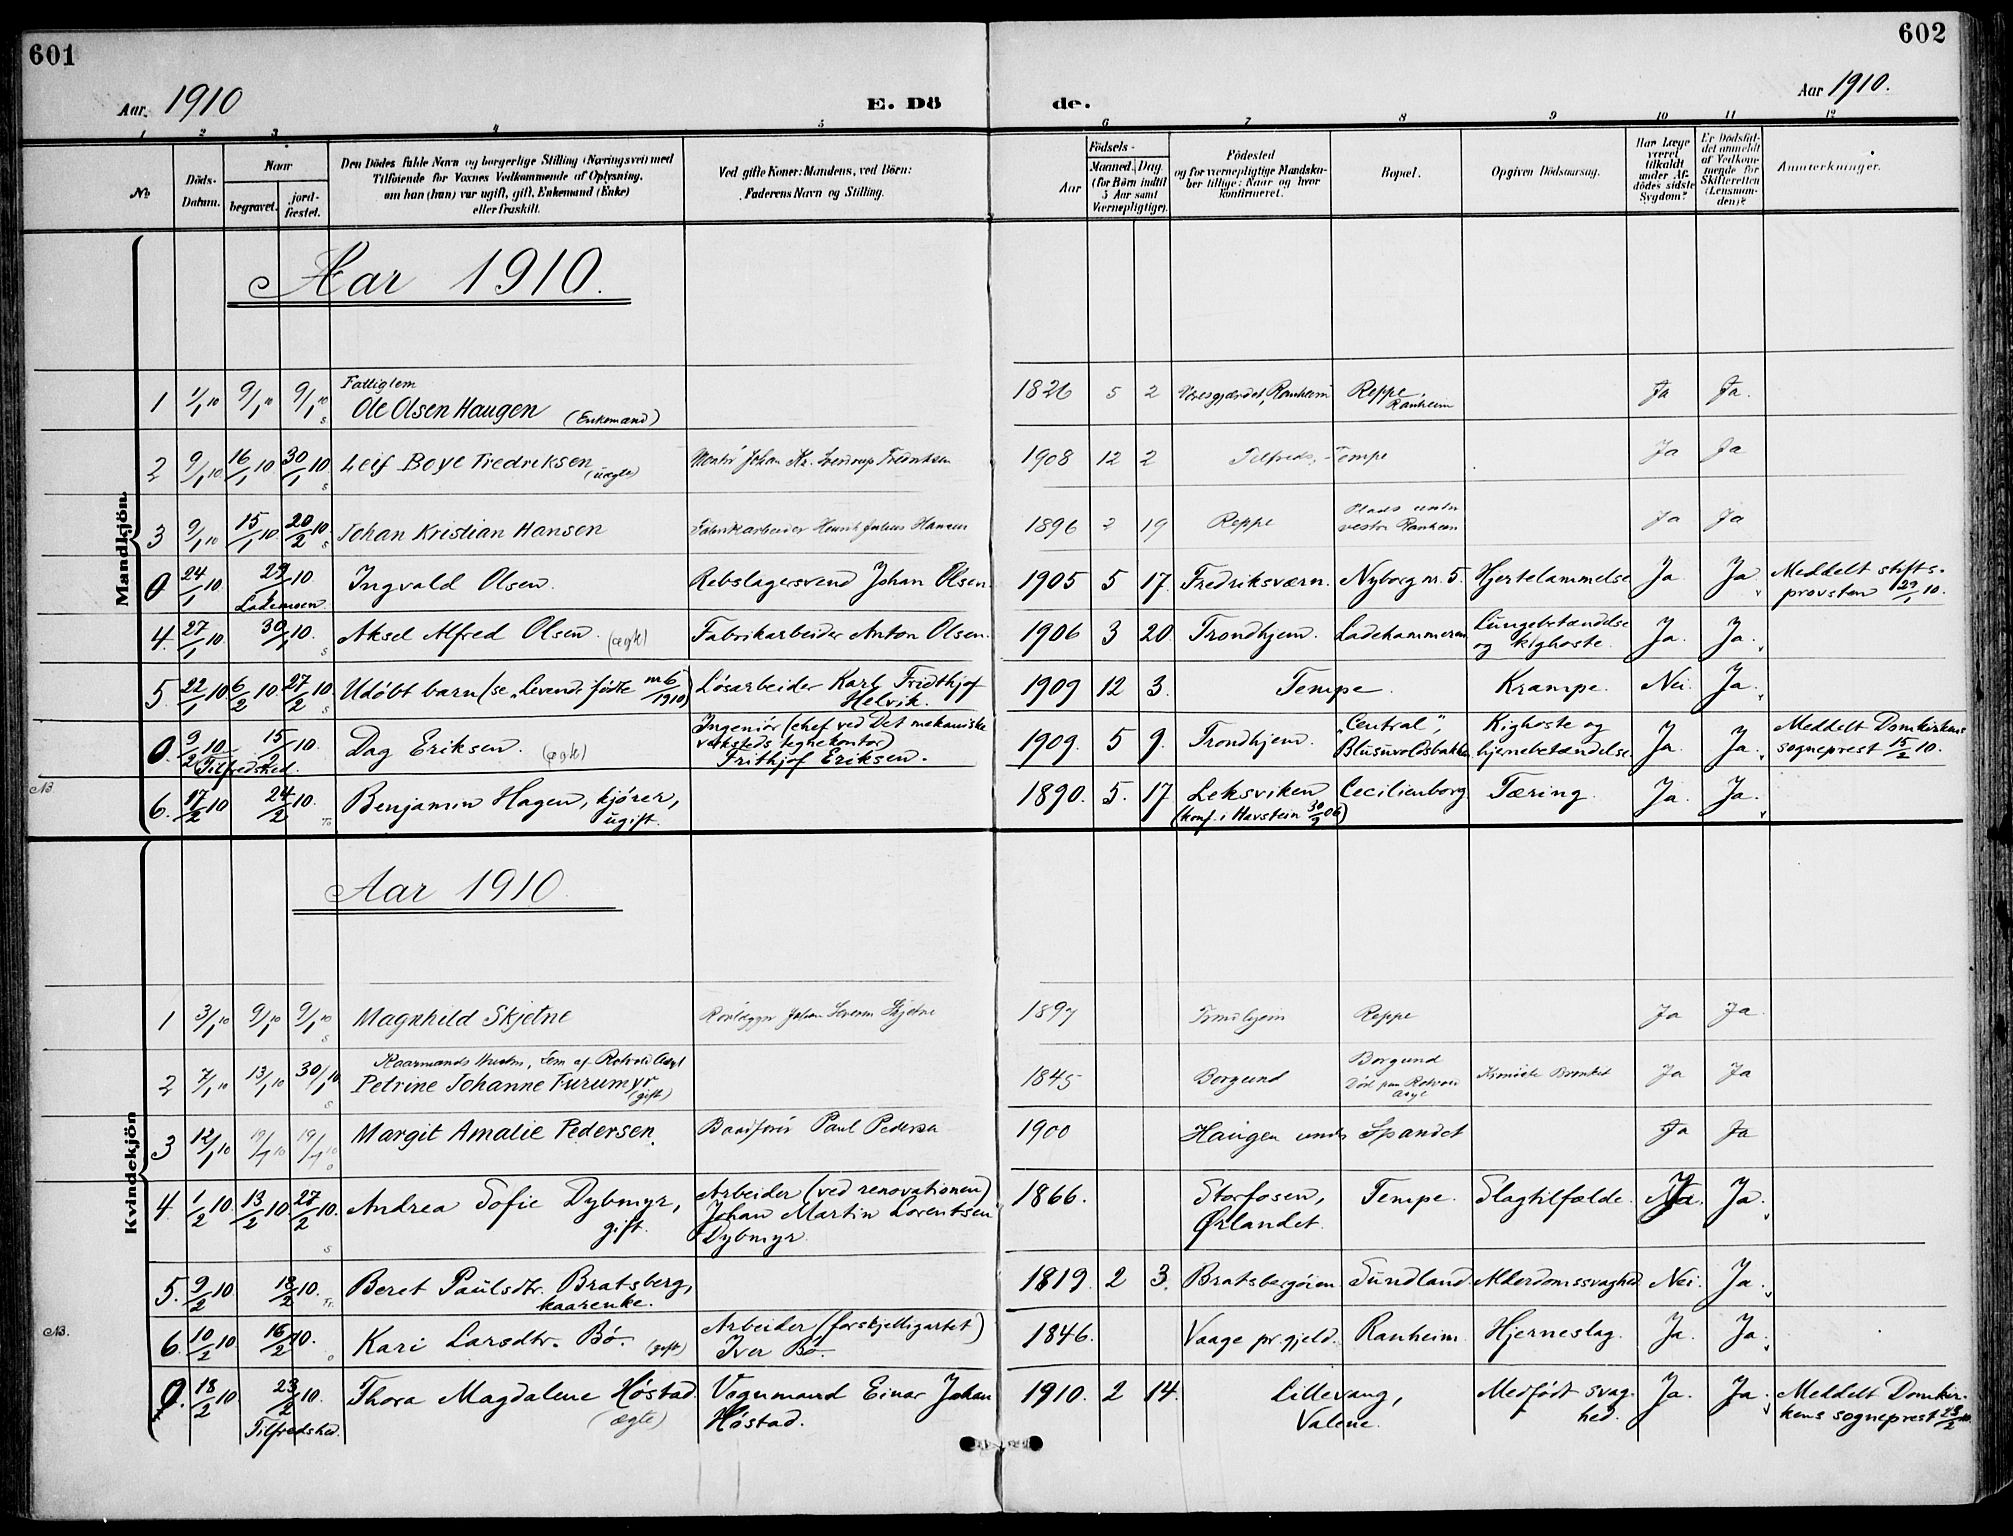 601
602
Aar. 1910
E. Dö
de.
Aar 1910.
1 2 3 4 5 6 7 8 9 10 11 12
No
Döds-Datum.
Naar
begravet.
jord-fæstet.
Den Dödes fulde Navn og borgerlige Stilling (Næringsvei) med
Tilføiende for Voxnes Vedkommende af Oplysning,
om han (hun) var ugift, gift, Enkemand (Enke)
eller fraskilt.
Ved gifte Koner: Mandens, ved Börn:
Faderens Navn og Stilling.
Födsels-
Aar
Maaned. Dag.
(for Børn indtil
5 Aar samt
Værnepligtige).
Födested
og for værnepligtige Mandska-
ber tillige: Naar og hvor
konfirmeret.
Bopæl.
Opgiven Dödsaarsag.
Har Læge
været
tilkaldt
under Af-
dödes sidste
Sygdom?
Er Dödsfal-
det anmeldt
af Vedkom-
mende for
Skifteretten
(Lensman-
den)?
Anmerkninger.
Mandkjön.
Aar 1910.
Fattiglem
1 1/1 10 9/1 10 9/1 10 Ole Olsen Haugen (Enkemand) 1826 5 2 Ranheim Reppe, Ranheim Ja Ja.
2 9/1 10 16/1 10 30/1 10 Leif Boye Fredriksen (uægte) Johan Kr. Fredriksen 1908 12 2 Tilfreds, Tempe Ja Ja
3 9/1 10 15/1 10 20/2 10 Johan Kristian Hansen Fabrikarbeider Henrik Julius Hansen 1896 2 19 Reppe Plads under vestre Ranheim Ja Ja
0 24/1 10 29/1 10 Lademoen Ingvald Olsen. Rebslagersvend Johan Olsen 1905 5 17. Fredriksværn. Nyborg nr. 5. Hjertelammelse Ja Ja Meddelt stifts-
provsten 29/1 10.
4. 27/1 10 30/1 10. Aksel Alfred Olsen. (ægte) Fabrikarbeider Anton Olsen. 1906 3 20 Trondhjem. Ladehammeren Lungebetændelse
og kighoste. Ja. Ja.
5. 22/1 10 6/2 10. 27/2 10. Udøbt barn (se "Levende fødte nr 6/1910) Løsarbeider Karl Fridthjof
Helvik. 1909 12 3. Tempe. Krampe. Nei. Ja.
0. 9/2 10 15/2 10. Tilfredshed. Dag Eriksen. (ægte) Ingeniør (chef ved Det mekaniske
værksteds tegnekontor)
Frithjof Eriksen. 1909. 5 9. Trondhjem. "Central",
Blusuvoldsbakken Kighoste og
hjernebetændelse. Ja. Ja. Meddelt Domkirkens
sogneprest 15/2 10.
NB.
6. 17/2 10 24/2 10. Benjamin Hagen, kjører,
ugift. 1890. 5. 17 Leksviken
(konf. i Havstein 30/9 06) Cecilienborg. Tæring. Ja. Ja.
Kvindekjön
Aar 1910.
1 3/1 10 9/1 10 9/1 10 Magnhild Skjetne Rørlægger Johan Severin Skjetne 1897 Trondhjem Reppe Ja Ja
Kaarmands Hustru, Lem af Rotvold Asyl
2 7/1 10 13/1 10 30/1 10 Petrine Johanne Furumyr (gift) 1845 Borgund Borgund
Død paa Rotvold
Asyl Kronisk Bronkit Ja Ja
3 12/1 10 19/1 10 19/1 10 Margit Amalie Pedersen. Baadfører Paul Pedersen 1900 Haugen under Spandet Ja Ja
4 1/2 10. 13/2 10 27/2 10. Andrea Sofie Dybmyr,
gift. Arbeider (ved renovationen)
Johan Martin Lorentsen
Dybmyr. 1866. Storfosen,
Ørlandet. Tempe. Slagtilfælde. Ja. Ja.
5. 9/2 10 18/2 10. Beret Paulsdtr. Bratsberg,
kaarenke. 1819. 2 3. Bratsbergøien Sundland. Alderdomssvaghed. Nei. Ja.
NB.
6. 10/2 10 16/2 10. Kari Larsdtr. Bø. (gift) Arbeider (forskjelligartet)
Iver Bø. 1846. Vaage pr.gjeld. Ranheim. Hjerneslag. Ja. Ja.
0. 18/2 10 23/2 10. Tilfredshed. Thora Magdalene Høstad. (ægte) Vognmand Einar Johan
Høstad. 1910. 2 14. Lillevang,
Valene. Medfødt svag-
hed. Ja. Ja. Meddelt Domkir-
kens sogneprest 23/2 10.